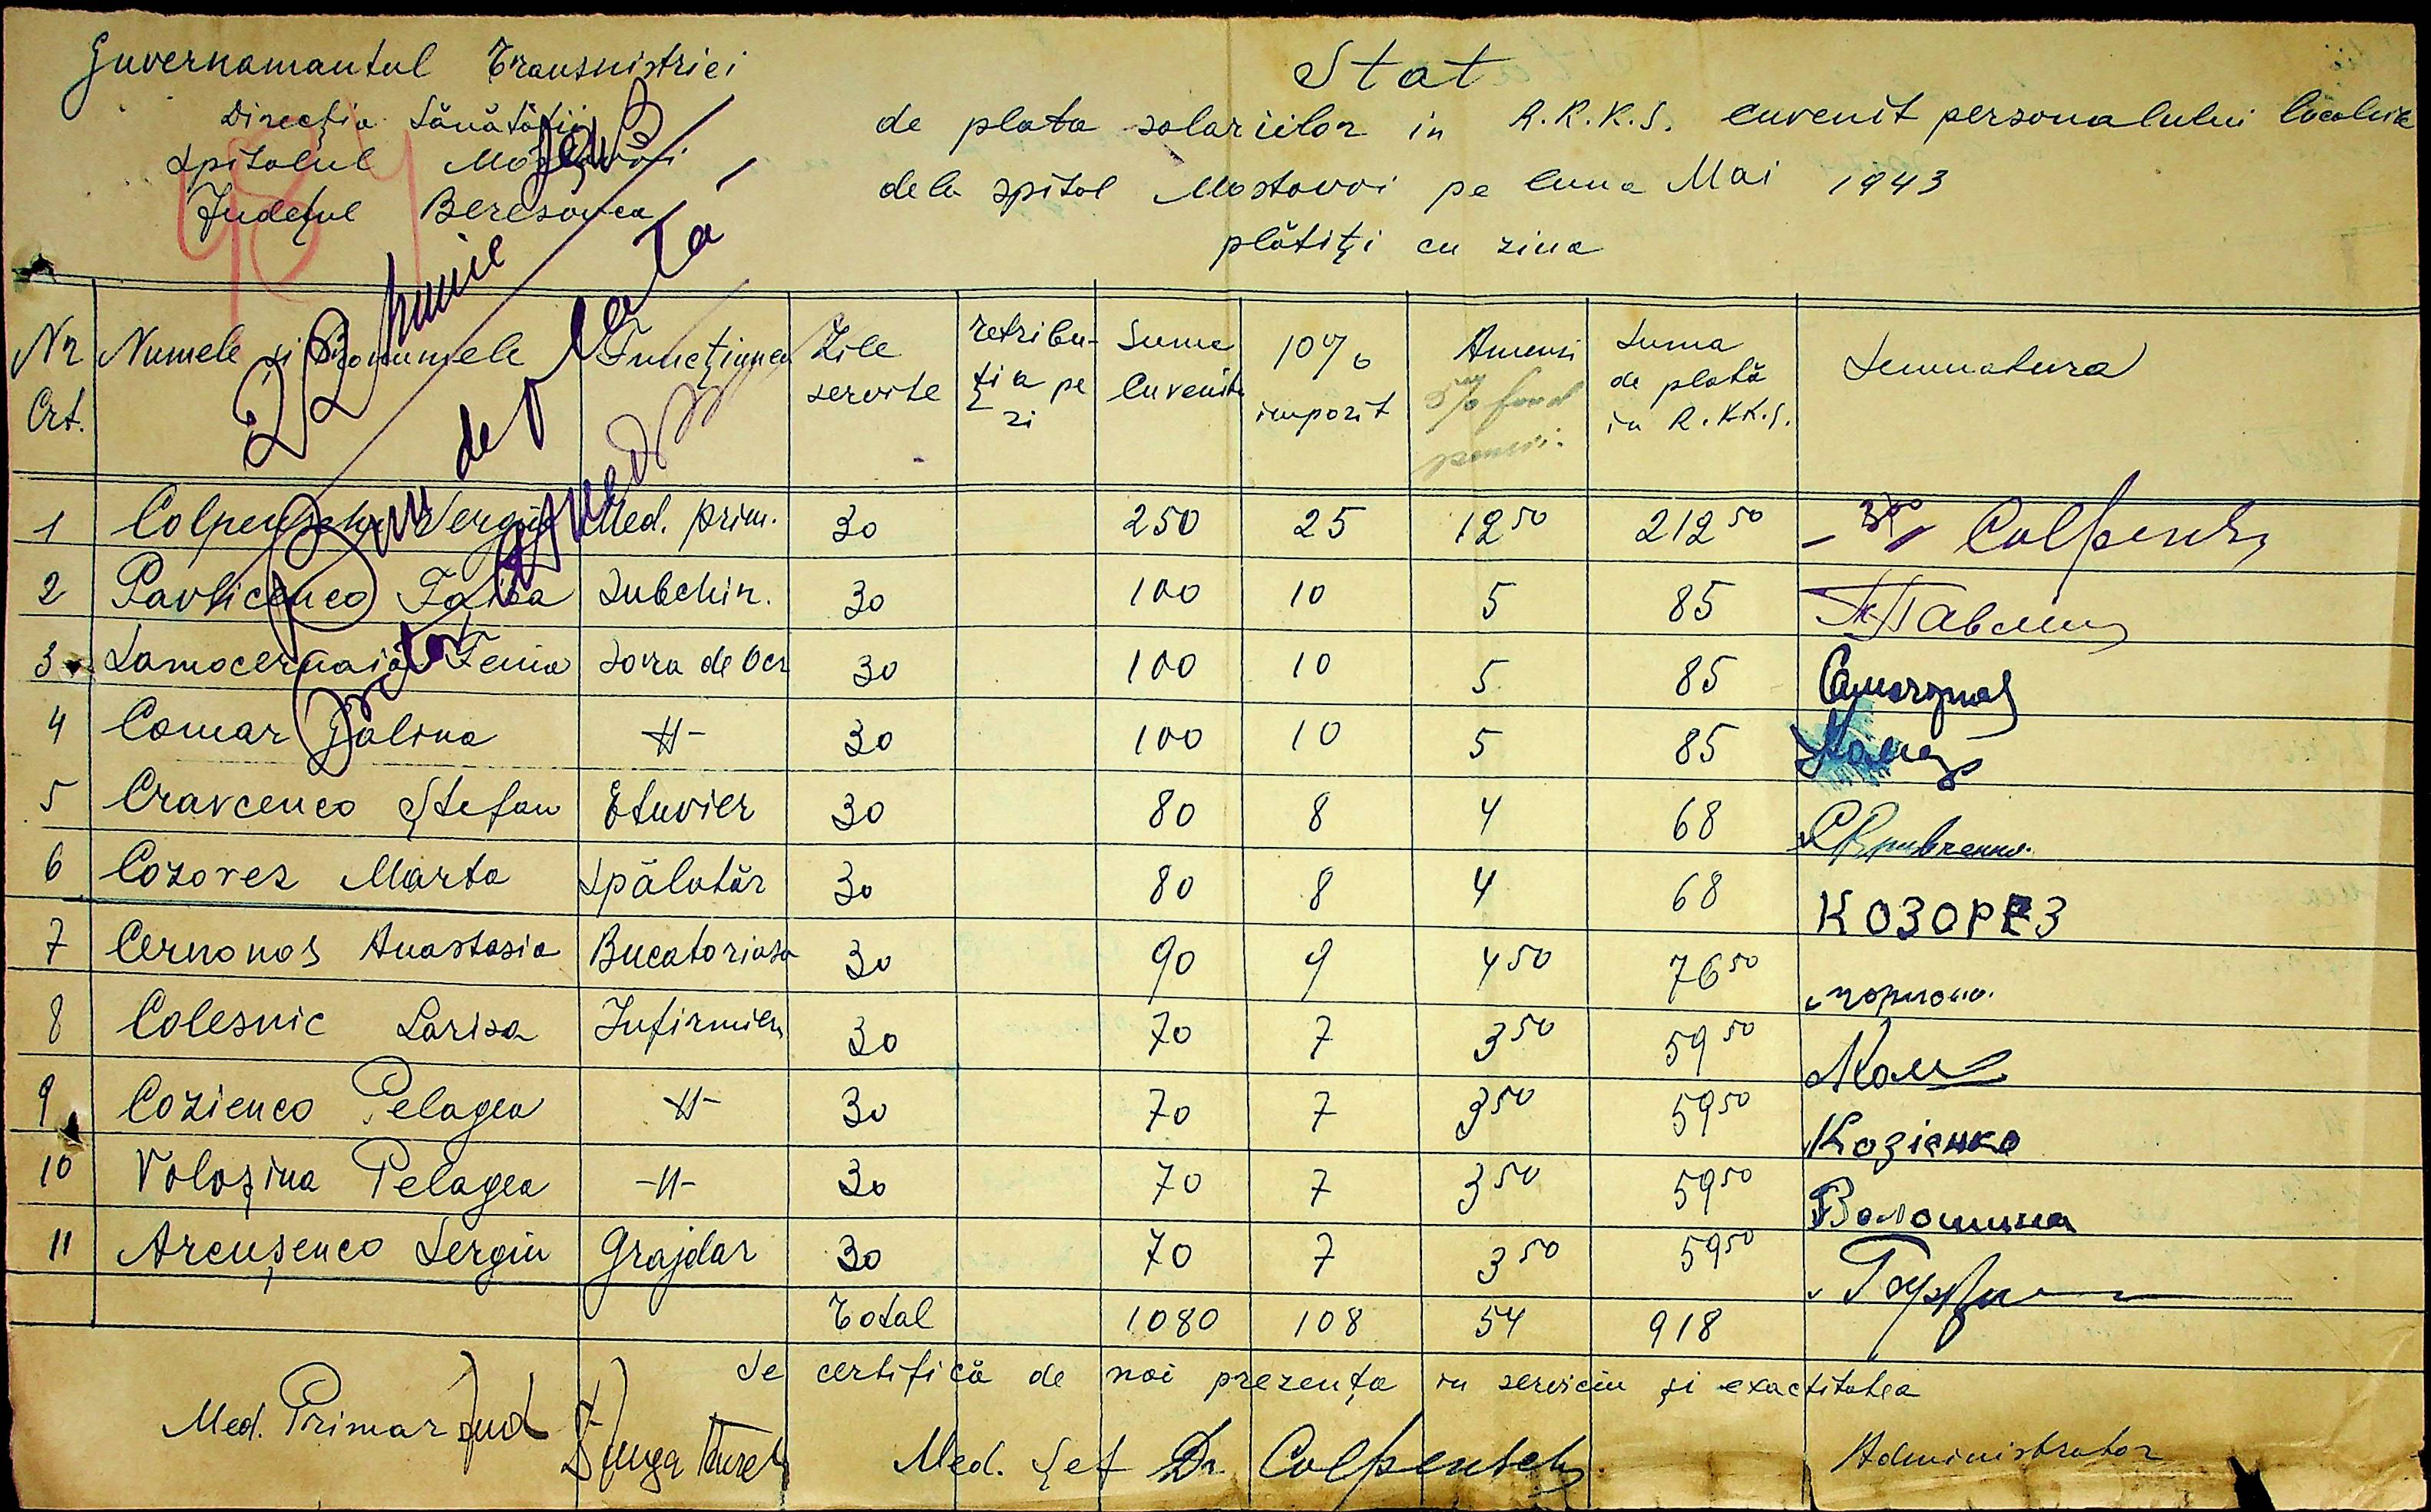 Guvernamantul Transnistriei
Direcția Sănătății
Spitolul
Județul Beresovca
Stat
de plata salariilor in R.K.K.S. cuvenit personalului localnic
dela spitol Mostovoi pe luna Mai 1943
plătiți cu ziua
22 Iunie
Bun de plată
Nr Crt. Numele și Pronumele Funcțiunea Zile servite retribuția pe zi Suma Cuvenită 10% impozit Amenzi 5% fond pensii. Suma de plată in R.K.K.S. Semnatura
1 Colpenschi Sergiu Med. prim. 30 250 25 12 50 212 50 Colpensch
2 Pavlicenco Taisa Subchir. 30 100 10 5 85
3 Samocernaia Fenia Sora de Ocr 30 100 10 5 85
4 Comar Galina -"- 30 100 10 5 85
5 Cravcenco Ștefan Etuvier 30 80 8 4 68
6 Cozorez Marta Spălotăr 30 80 8 4 68 КОЗОРЕЗ
7 Cernonos Anastasia Bucatoriasa 30 90 9 4 50 76 50
8 Colesnic Larisa Infirmieră 30 70 7 3 50 59 50
9 Cozienco Pelagea -"- 30 70 7 3 50 59 50 Козіенко
10 Voloșina Pelagea -"- 30 70 7 3 50 59 50 Волошина
11 Arcușenco Sergiu Grajdar 30 70 7 3 50 59 50
Total 1080 108 54 918
Se certifică de noi prezența in serviciu și exactitatea
Med. Primar Jud
Med. Șef Dr. Colpensch
Administrator